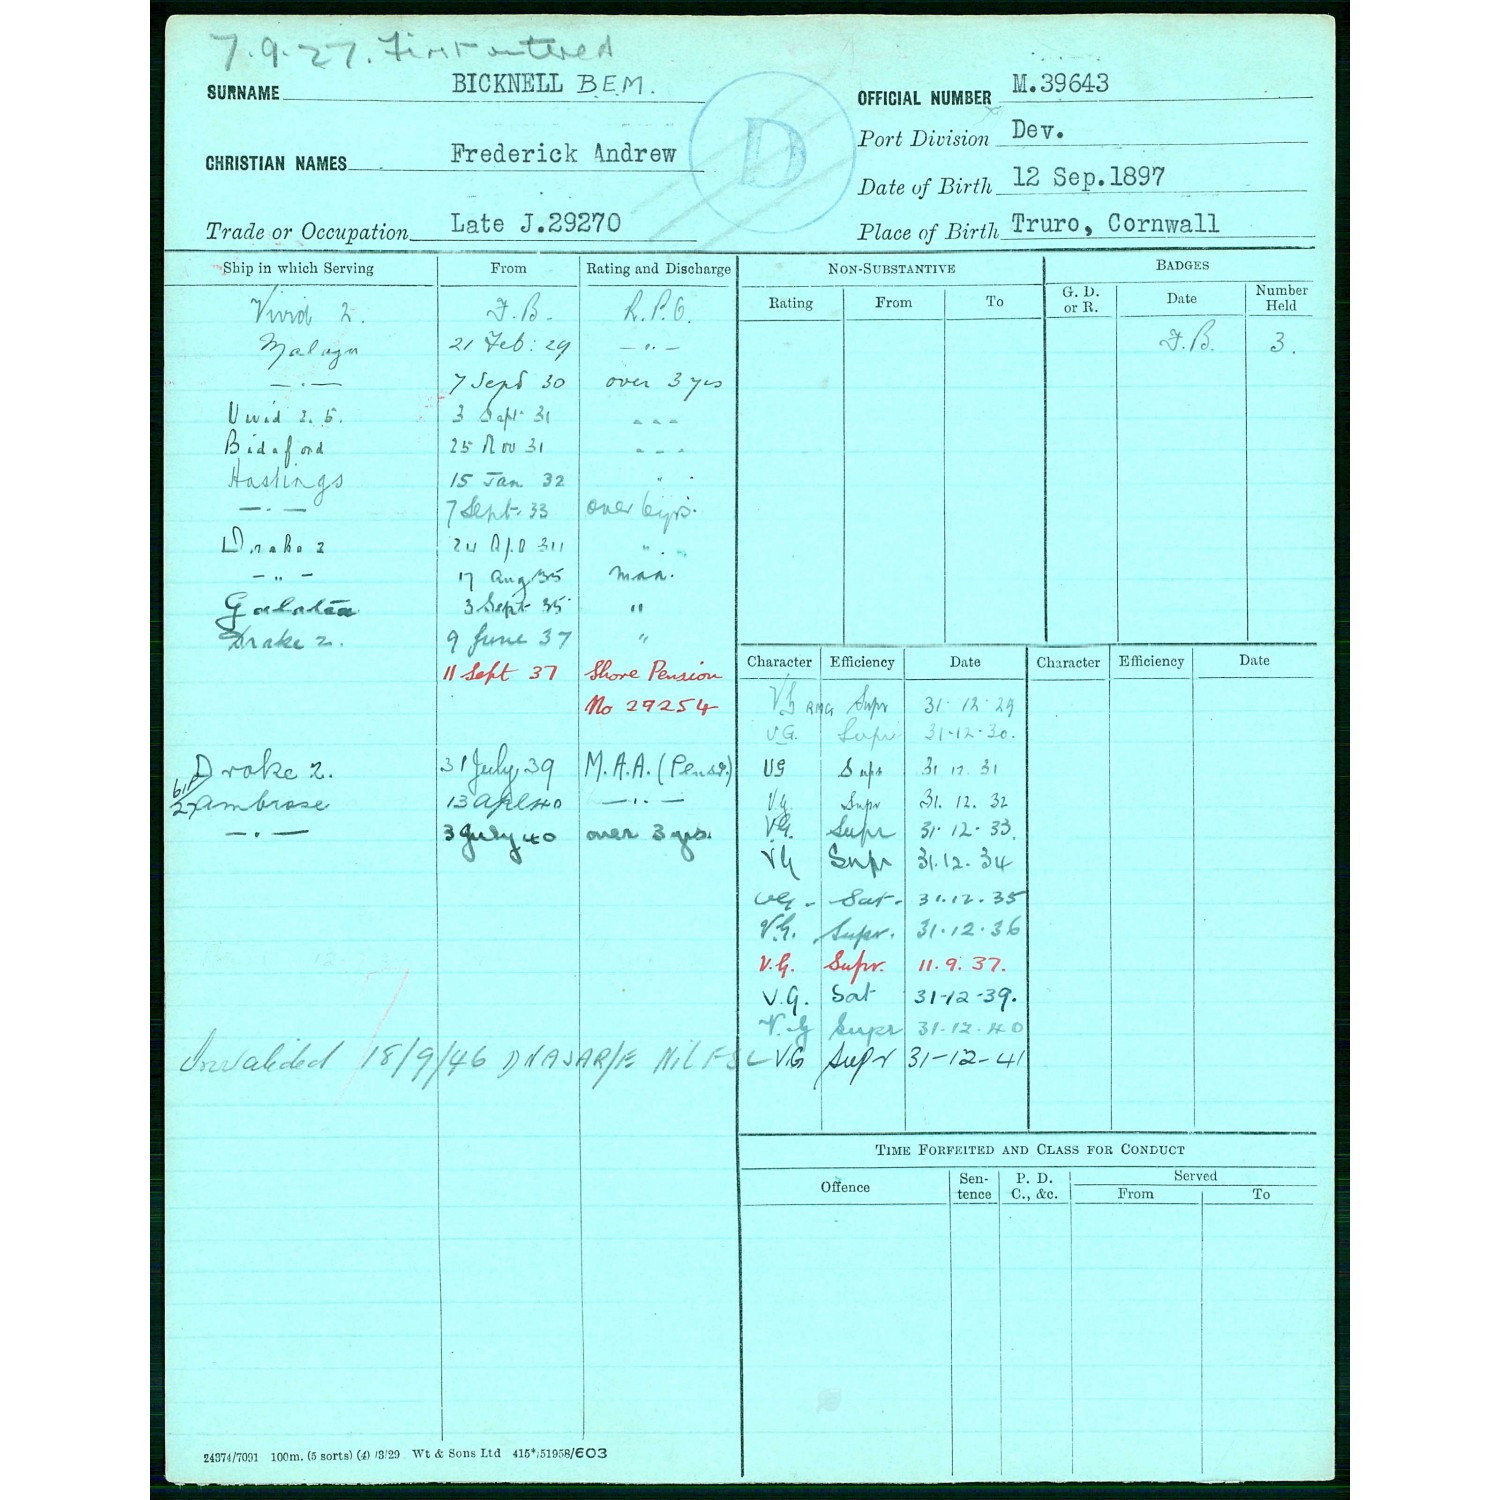 7.9.27. First entered
SURNAME BICKNELL B.E.M.
OFFICIAL NUMBER M.39643
D
Port Division Dev.
CHRISTIAN NAMES Frederick Andrew
Date of Birth 12 Sep.1897
Trade or Occupation Late J.29270
Place of Birth Truro, Cornwall
Ship in which Serving From Rating and Discharge
Vivid 2. F.B. R.P.O.
Malaya 21 Feb: 29 — " —
— " — 7 Sept 30 over 3 yrs
Vivid 2. 5. 3 Sept 31 " " "
Bideford 25 Nov 31 " " "
Hastings 15 Jan 32 " "
— " — 7 Sept. 33 over 6 yrs.
Drake 2 24 Apl 34 " "
— " — 17 Aug 35 Maa.
Galatea 3 Sept 35 "
Drake 2. 9 June 37 "
11 Sept 37 Shore Pension
No 29254
Drake 2. 31 July 39 M.A.A. (Pensr.)
Ambrose 13 Apl 40 — " —
— " — 3 July 40 over 3 yrs.
Invalided 18/9/46 DNASAR/E Nil F S L
NON-SUBSTANTIVE
Rating From To
BADGES
G. D. or R. Date Number Held
F.B. 3.
Character Efficiency Date Character Efficiency Date
VG RMG Supr 31-12-29
VG. Supr 31-12-30.
VG Supr 31 12. 31
VG. Supr 31. 12. 32
VG. Supr 31-12-33.
VG Supr 31.12.34
VG. Sat. 31.12.35
V.G. Supr. 31.12.36
V.G. Supr. 11.9.37.
V.G. Sat 31-12-39.
V.G Supr 31-12-40
VG Supr 31-12-41
TIME FORFEITED AND CLASS FOR CONDUCT
Offence Sentence P. D. C., &c. Served
From To
24374/7091 100m. (5 sorts) (4) /3/29 Wt & Sons Ltd 415*/51958/603